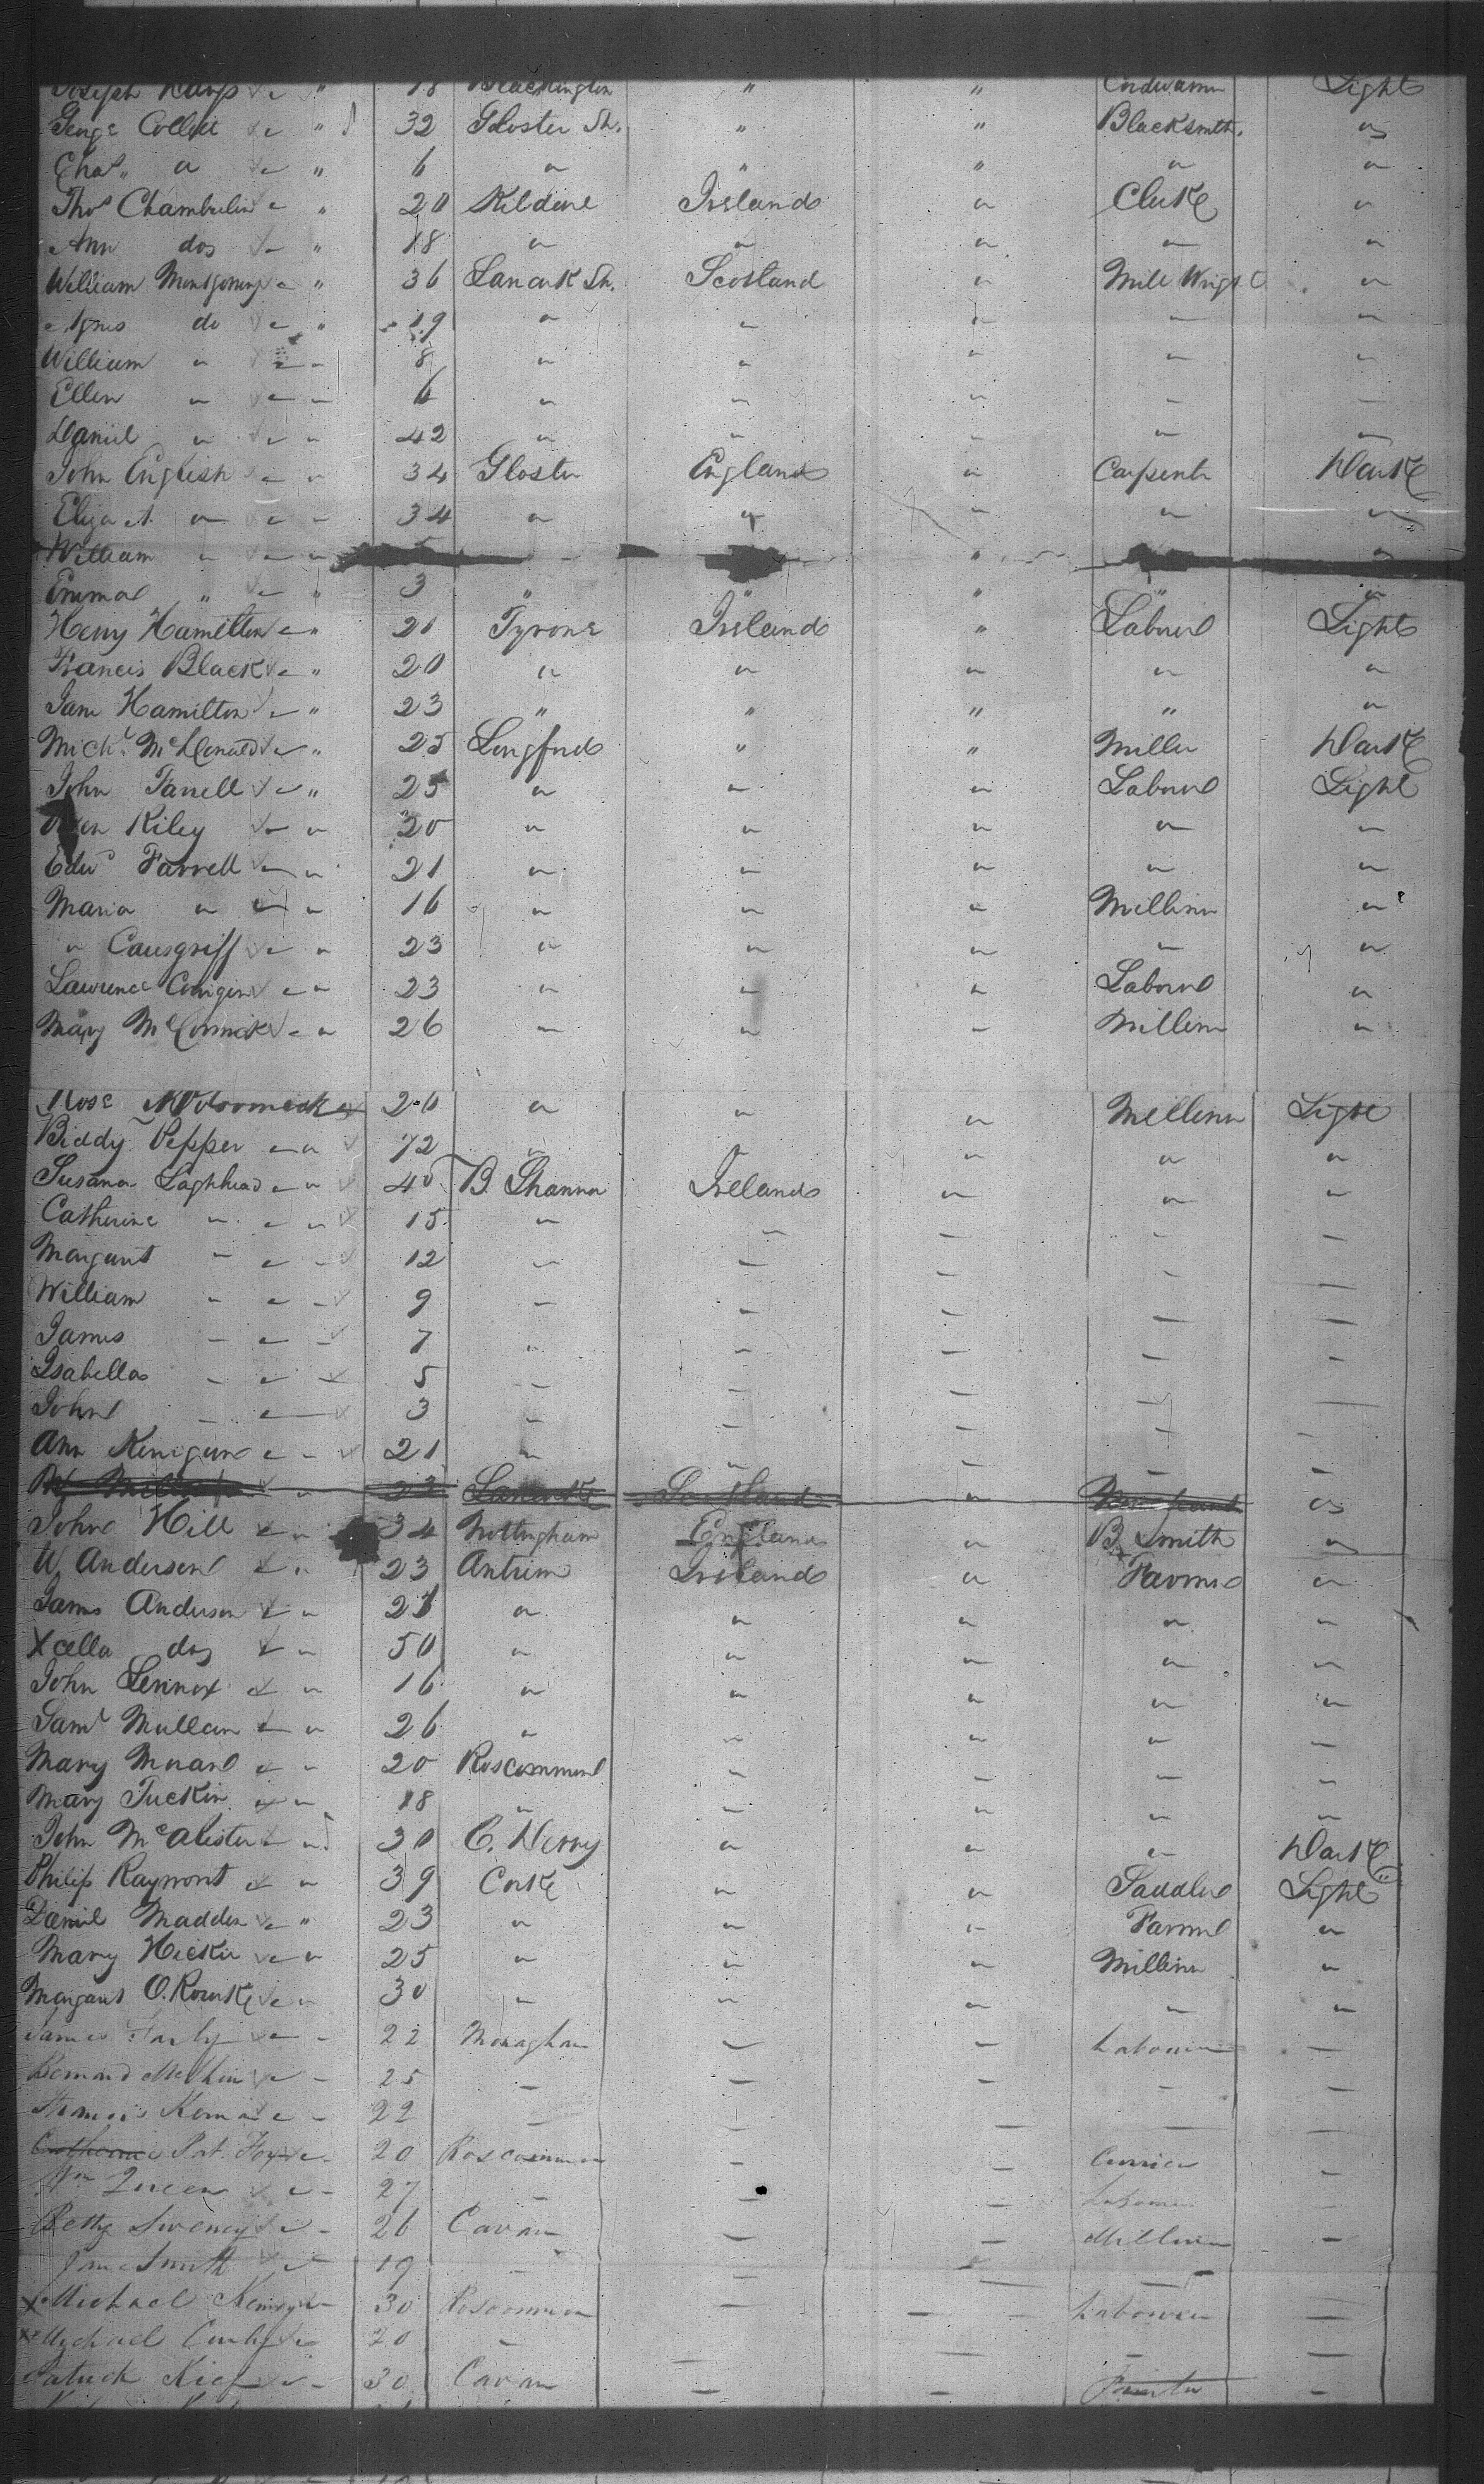 18 " " Light
George Collett " " 32 Gloster Sh. " " Blacksmith. "
Chas. " " " 6 " " " " "
Thos Chamberlin " " 20 Kildare Ireland " Clerke "
Ann do " " 18 " " " " "
William Montgomery " " 36 Lanark Sh. Scotland " Mill Wright "
Agnes do " " 19 " " " " "
William " " " 8 " " " " "
Ellen " " " 6 " " " " "
Daniel " " " 42 " " " " "
John English " " 34 Gloster England " Carpenter Dark
Eliza A. " " " 34 " " " " "
William " " " " "
Emma " " " 3 " " " " "
Henry Hamilton " " 20 Tyrone Ireland " Labour Light
Francis Black " " 20 " " " " "
Jane Hamilton " " 23 " " " " "
Michl. McDonald " " 25 Longford " " Miller Dark
John Farrell " " 25 " " " Labour Light
Riley " " 20 " " " " "
Edwd Farrell " " 21 " " " " "
Maria " " " 16 " " " Milliner "
" Causgriff " " 23 " " " " "
Lawrence " " 23 " " " Labour "
Mary McCormick " " 26 " " " Milliner "
Rose McCormack " 20 " " " Milliner Light
Biddy Pepper " " 72 " " " " "
Susana Laghhead " " 40 B. Shannon Ireland " " "
Catherine " " " 15 " " " " "
Margaret " " " 12 " " " " "
William " " " 9 " " " " "
James " " " 7 " " " " "
Isabella " " " 5 " " " " "
John " " " 3 " " " " "
Ann " " 21 " " " " "
" 23 Lanark Scotland " "
John Hill " " 34 Nottingham England " B. Smith "
W Anderson " " 23 Antrim Ireland " Farmer "
James Anderson " " 21 " " " " "
do " " 50 " " " " "
John Lennox " " 16 " " " " "
Saml Mullan " " 26 " " " " "
Mary " " 20 Roscommon " " " "
Mary Tuckin " " 18 " " " " "
John McAlister " " 30 C. Derry " " " Dark
Philip Raymont " " 39 Corke " " Saddler Light
Daniel Madden " " 23 " " " Farmer "
Mary Hickie " " 25 " " " Milliner "
Margaret O.Rourke " " 30 " " " " "
James " " 22 Monaghan " " Labourer "
" " 25 " " " " "
Francis " " 22 " " " "
Catherine Pat Foy " 20 Roscommon " " Currier "
Wm Queen " " 27 " " " Labourer "
Betty Sweney " " 26 Cavan " " Milliner "
Jane Smith " " 19 " " " "
x Michael " 30 Roscommon " " Labourer "
x Michael " 20 " " " "
Patrick " " 30 Cavan " " "